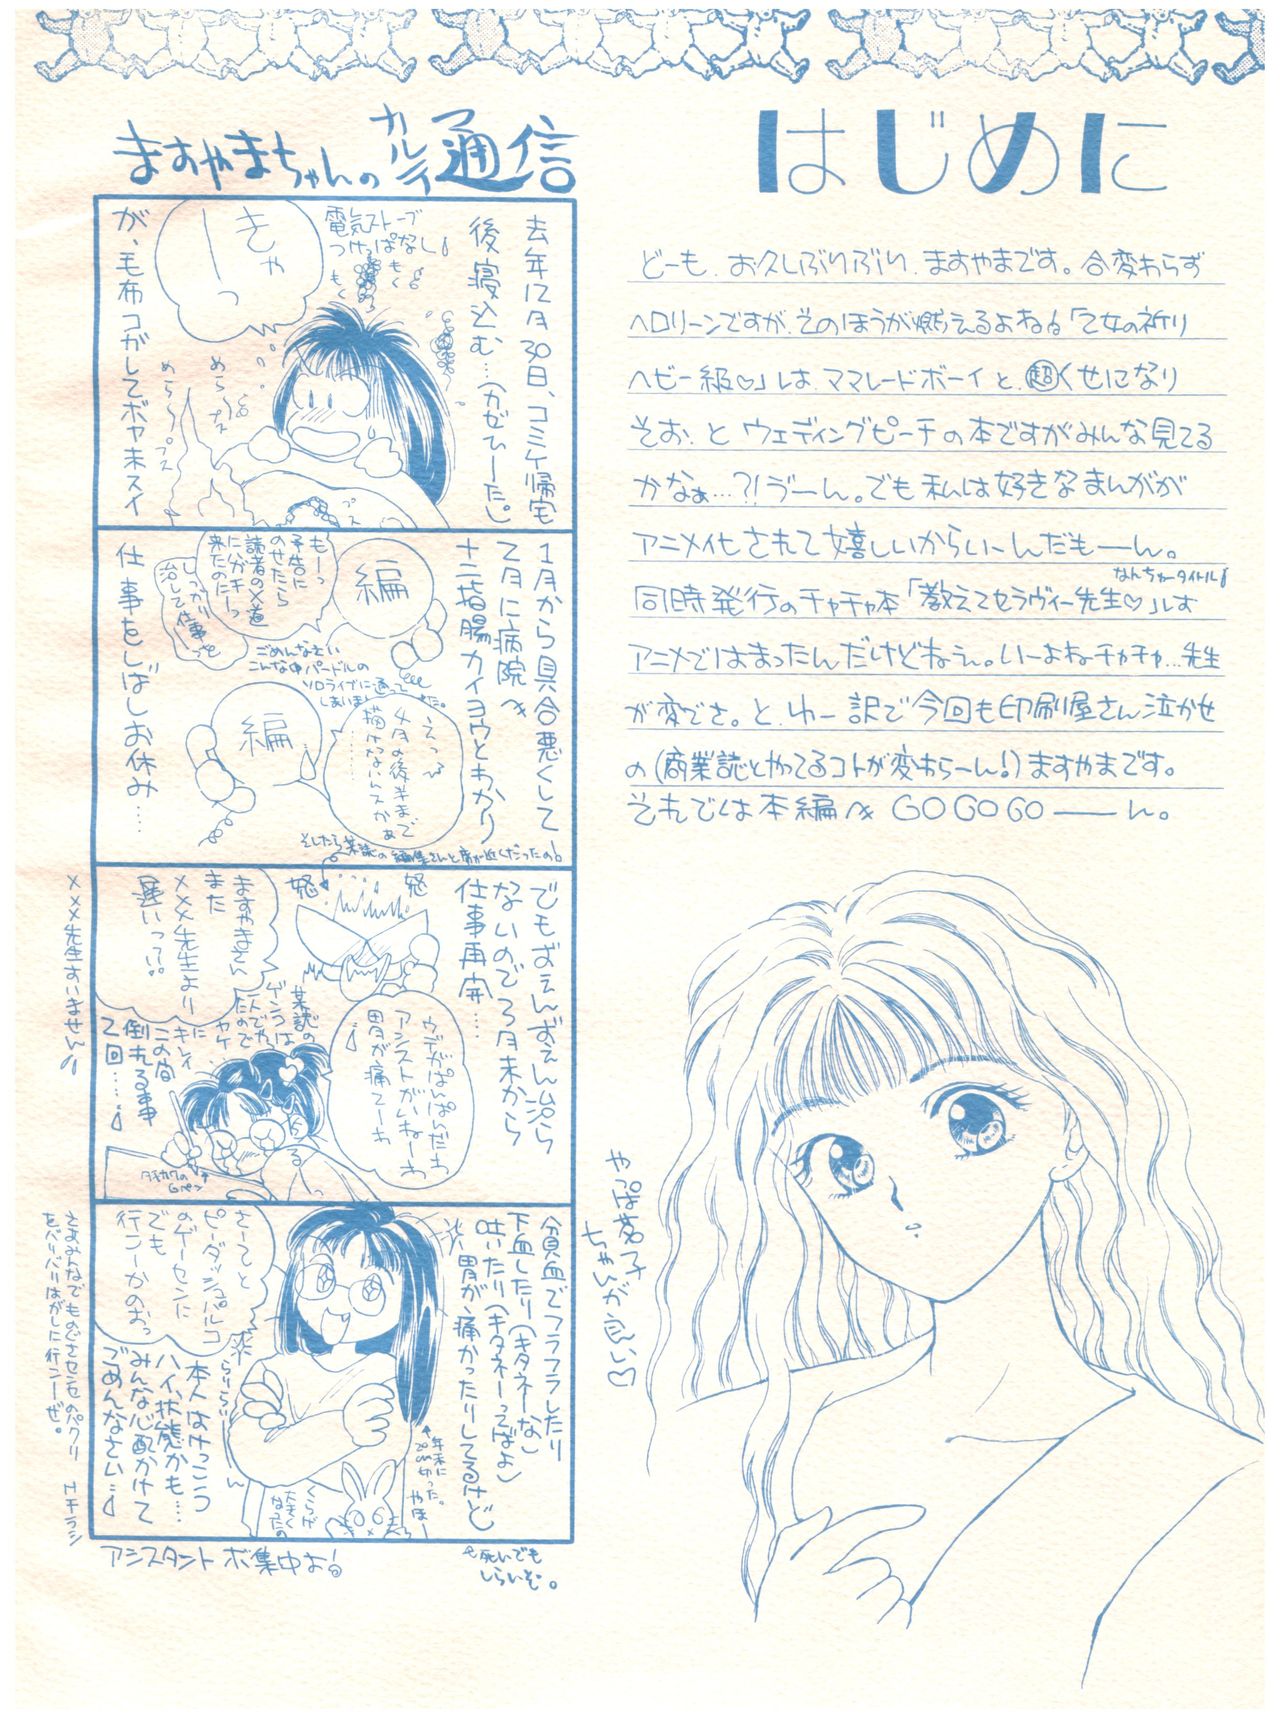 はじめに
どーも、お久しぶりぶり、ますやまです。合変わらず
ヘロリーンですが、そのほうが燃えるよね。「乙女の祈り
ヘビー級♡」しは、ママレードボーイと、超くせになり
そお、と ウェディングピーチの本ですがみんな見てる
かなぁ…?!ゔーん。でも私は好きなまんがが
アニメイ化されて嬉しいからいーんだもーん。
なんちゅータイトル
同時発行のチャチャ本「教えてセラヴィー先生♡」しも
アニメではまったんだけどねぇ。いーよねチャチャ…先生
が変でさ。と、ゆー訳で今回も印刷屋さん泣かせ
の(商業誌とやってるコトが変わらーん!)ますやまです。
それでは本編へ GO GO GO ーん。
やっぱ茗子
ちゃんが良い♡
ますやまちゃんの
カルテ通信
去年12月30日、コミケ帰宅
後寝込む…(カゼひーた。)
電気ストーブ
つけっぱなし
もく
もく
きゃ
ーっ
が、毛布コがしてボヤ未スイ
めら〜
めら〜
プス
プス
1月から具合悪くして
2月に病院へ
十二指腸カイヨウとわかり
仕事をしばしお休み…
編
もーっ
予告に
のせたら
読者の×道
にがキーっ
来たのに
しっかり
治して仕事を
ごめんなさい
こんな中バードルの
ソロライブに通って
しまいました。
編
えっ
4月の後半まで
描けないんスかぁ
そしたら某誌の編集さんと席が近くだったの
でもぜんぜん治ら
ないので3月末から
仕事再開…
怒
怒
ウデがぱんぱんだわ
アシストがいねーわ
胃が痛てーわ
ますやまさん
また
×××先生より
遅いって…
某誌の
ゲンコウは
一人でや
ったので
キレイ
に
この間
倒れる事
2回…
タチカワの
Gペン
×××先生すいません
貧血でフラフラしたり
下血したり(キタネーな)
吐いたり(キタネーってばよ)
胃が痛かったりしてるけど
さーてと
ピーダッシュパルコ
のゲーセンに
でも
行こーかのおっ
らりらりーん
本人はけっこう
ハイ状態かも…
みんな心配かけて
ごめんなさい…
年末に
20cm切った。
やほー
くらげ
大きく
なったの
さあみんなでものごさセンセのパクリ
をバリバリはがしに行こーぜ。
アシスタントボ集中よ
死いでも
しらいぞ。